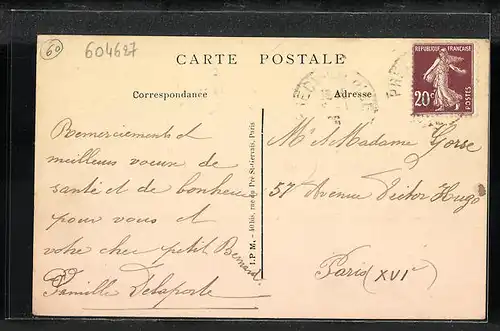 60
604627
CARTE POSTALE
Correspondance
Adresse
REPUBLIQUE FRANÇAISE
20c
POSTES
Remerciements et
meilleurs voeux de
santé et de bonheur
pour vous et
votre cher petit Bernard
Famille Delaporte
I.P.M. - 40 bis, rue du Pré St-Gervais, Paris
Mr et Madame Gorse
57 Avenue Victor Hugo
Paris (XVIe